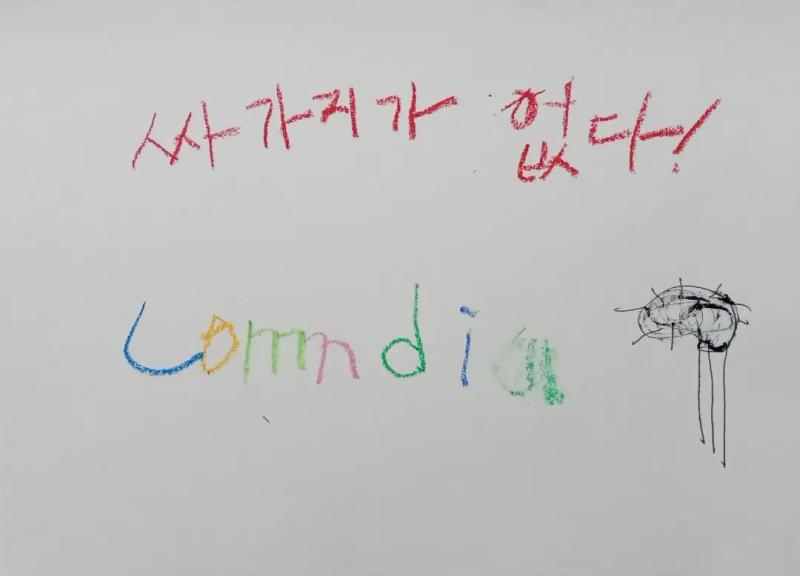 싸가지가 없다!
Lomndia